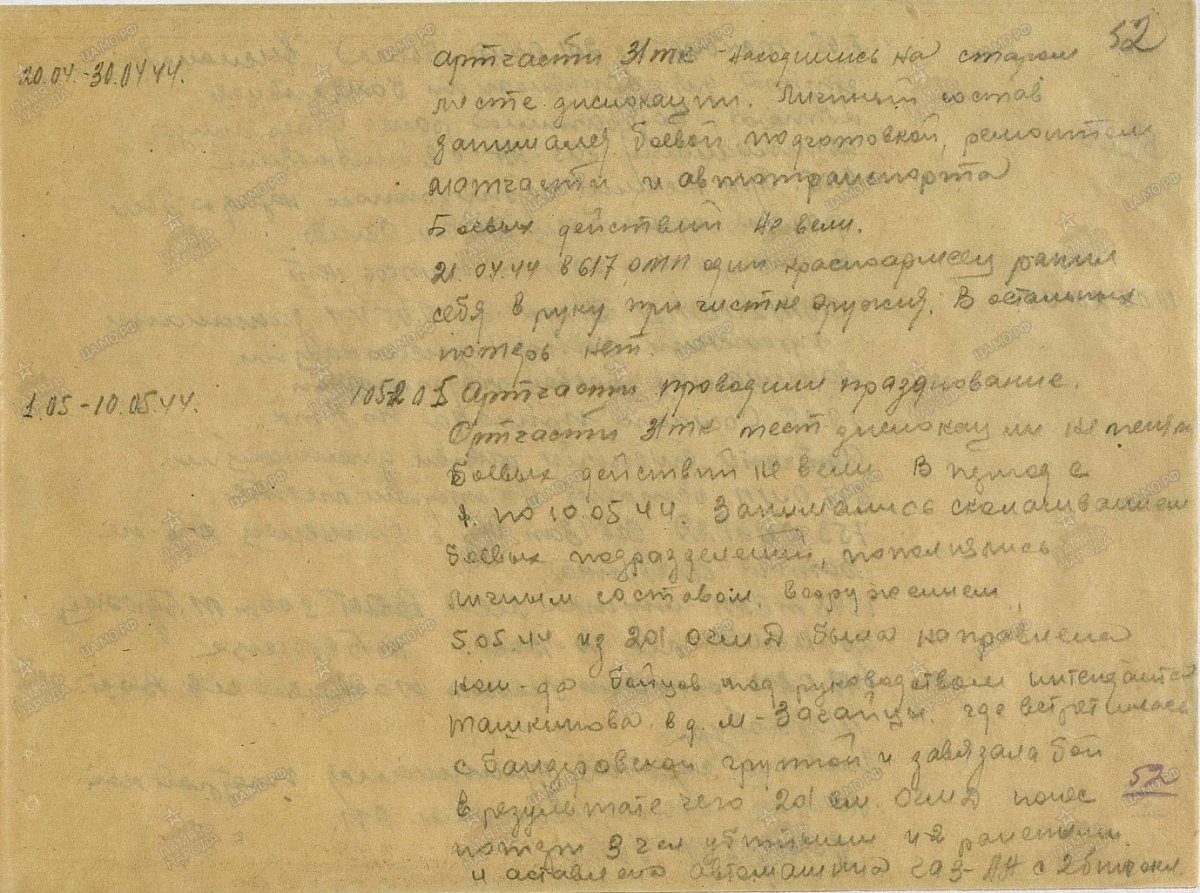 52
20.04.-30.04 44г. артчасти 31 тк - находились на старом
месте дислокации. Личный состав
занимался боевой подготовкой, ремонтом
матчасти и автотранспорта
Боевых действий не вели.
21.04.44 в 617 ОМП один красноармеец ранил
себя в руку при чистке оружия. В остальных
потерь нет.
1.05 - 10.05.44г. Артчасти проводили празднование.
Артчасти 31 тк мест дислокации не
боевых действий не вели В период с
1. по 10.05 44. Занимались сколачиванием
боевых подразделений, пополнялись
личным составом, вооружением
5.05.44 из 201 была направлена
ком-да бойцов под руководством интенданта
Ташкинова в д. М-Загайцы. где встретилась
с бандеровской группой и завязала бой
в результате чего 201 понес
потери 3 чел убитыми и 2 ранеными.
и оставлена автомашина ГАЗ-АА с
52